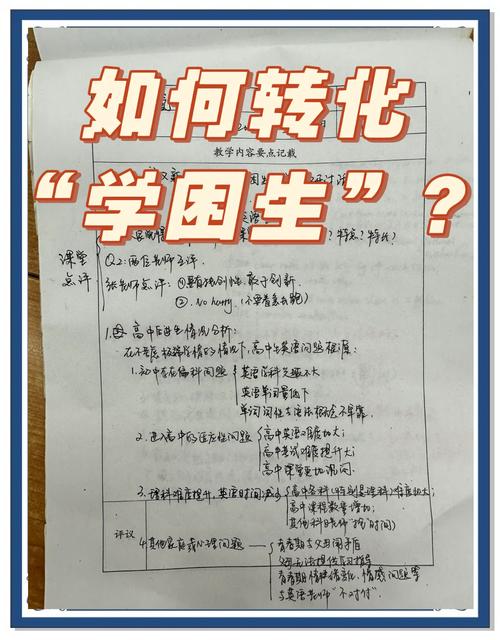 如何转化
“学困生”？
教学内容要点记载
课堂
点评
Q2:两位老师点评.
张老师点评: ①要有独创性,敢于创新.
②. No hurry. (不要着急去跑)
高中后进生情况分析:
在不考虑极端学情的情况下,高中生英语问题
1.初中存在偏科问题
英语学科兴趣不大
英语单词量低下
单词词性与语法概念不牢靠.
2.进入高中的适应性问题
高中英语难度加大;
高中考试难度提升大;
高中课堂更加
3.理科难度提升,英语时间减少
高中各科(特别是理科)难度加大;
高中课程数量增加;
其他科目老师“抢”时间)
评议
4.其他家庭或心理问题
青春期与父母闹矛盾
父母无法提供学习指导
青春期情绪 情感问题等
与英语老师“不对付”.